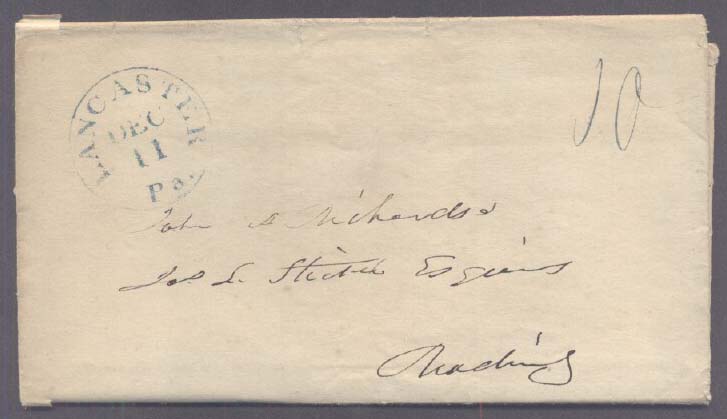 LANCASTER
DEC
11
Pa.
10
John S Richards &
Jos L. Stichter Esquires
Reading